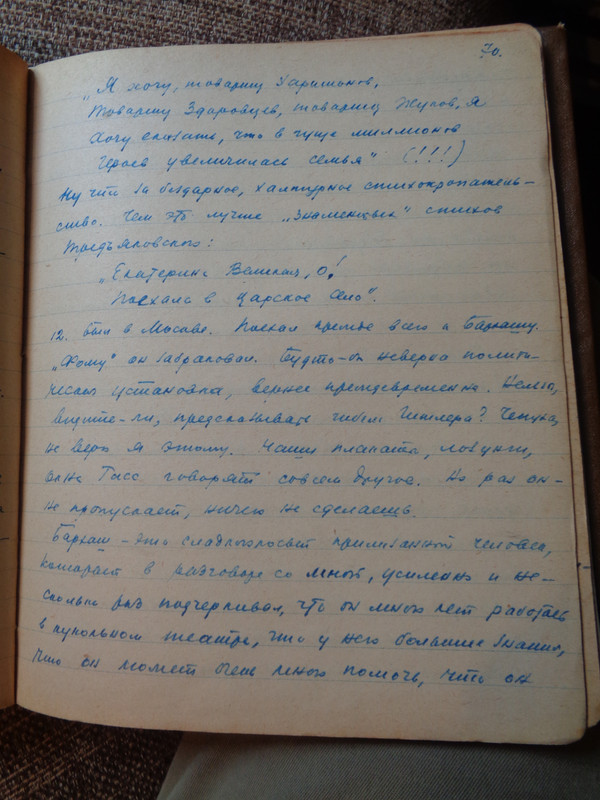 70.
„Я хочу, товарищ Харитонов,
Товарищ Здоровцев, товарищ Жуков, я
Хочу сказать, что в гуще миллионов
Героев увеличилась семья" (!!!)
Ну что за бездарное, халтурное стихокропатель-
ство. Чем это лучше „знаменитых" стихов
Тредьяковского:
„Екатерина Великая, о!
Поехала в Царское Село".
12. Был в Москве. Поехал прежде всего к Бархашу.
„Фому" он забраковал. Будто-бы неверна полити-
ческая установка, вернее преждевременна. Нельзя,
видите-ли, предсказывать гибель Гитлера? Чепуха,
не верю я этому. Наши плакаты, лозунги,
окна Тасс говорят совсем другое. Но раз он-
не пропускает, ничего не сделаешь.
Бархаш - это сладкоголосый прилизанный человек,
который в разговоре со мной, усиленно и не-
сколько раз подчеркивал, что он много лет работает
в кукольном театре, что у него большие знания,
что он может очень много помочь, что он